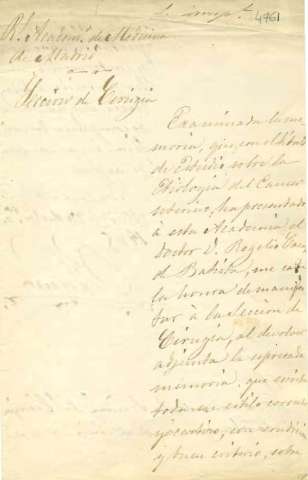 4961
Rl. Academa. de Medicina
de Madrid
Sección de Cirugia
Examinada la me-
moria, que, con el título
de Estudio sobre la
Etiologia del Cancer
uterino, ha presentado
á esta Academia el
doctor D. Rogelio
de Batista, me
la honra de manifes
tar á la Seccion de
Cirugia, al devolver
adjunta la expresada
memoria que
toda en estilo correcto
y castizo, con erudicion
y buen criterio, sobre